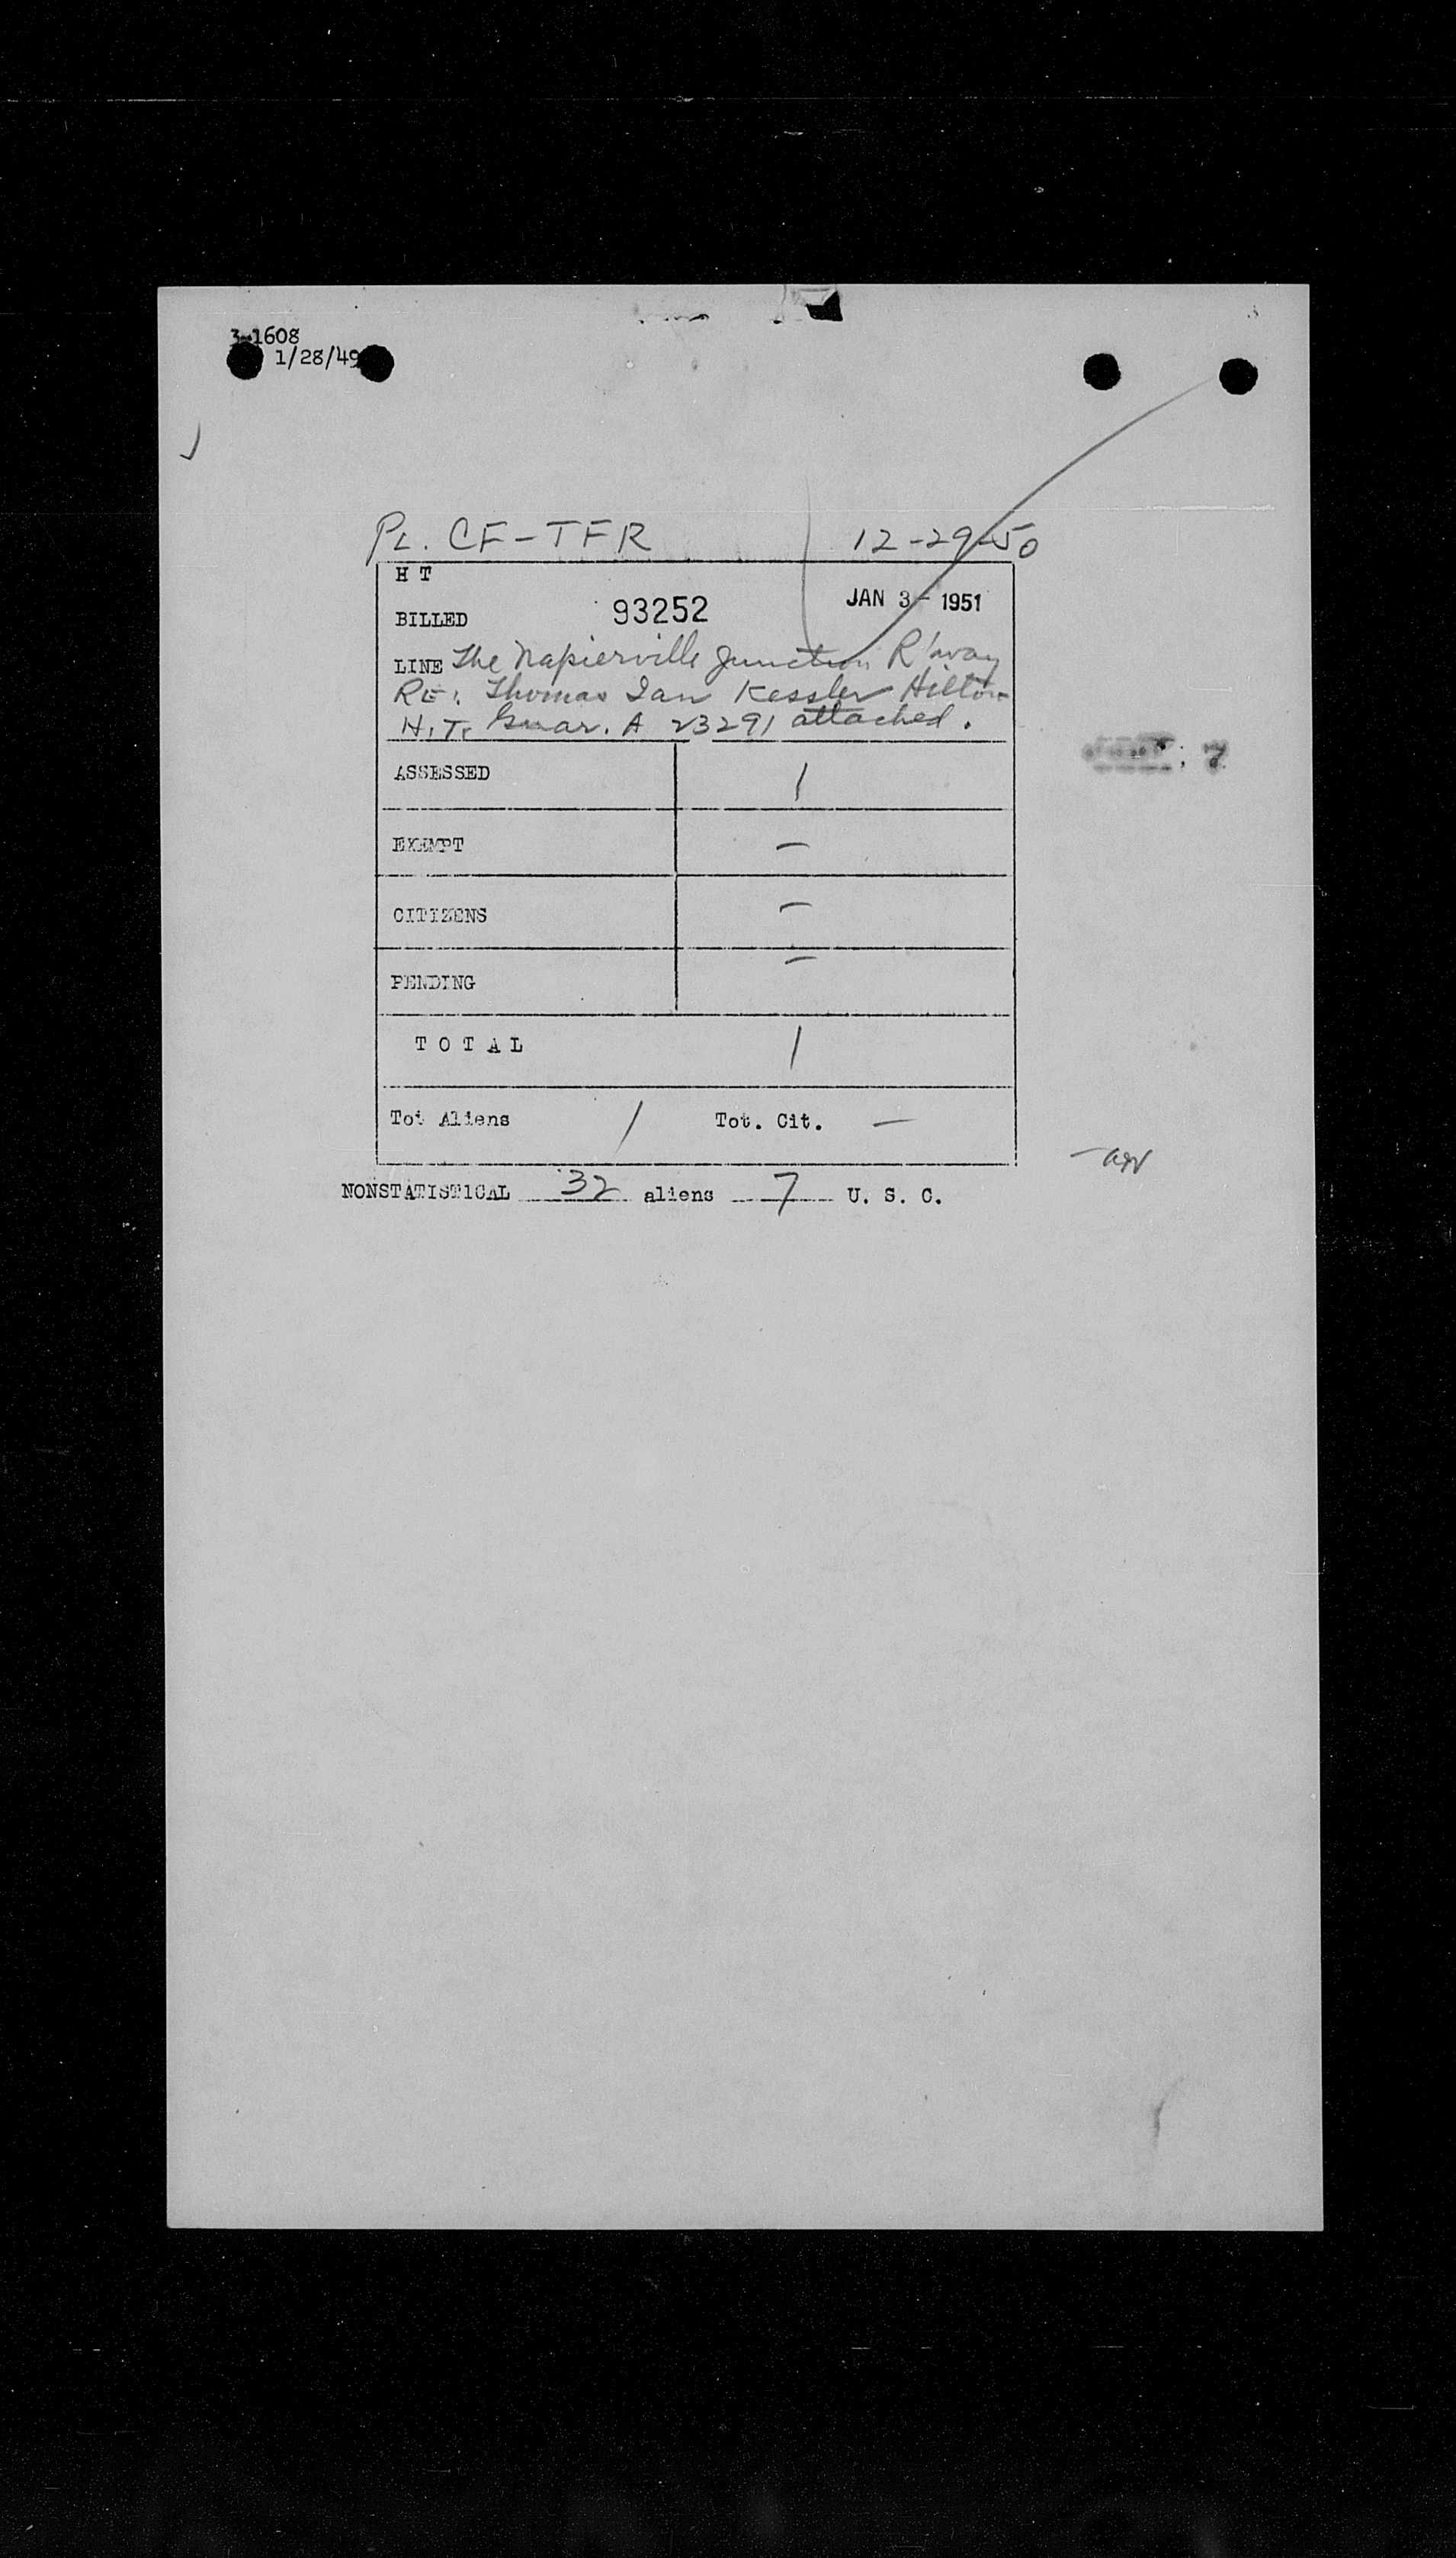 3-1608
1/28/49
PL. CF-TFR 12-29-50
H T
BILLED 93252 JAN 3- 1951
LINE The Napierville Junction R'way
RE: Thomas Ian Kessler Hilton
H.T. Guar. A 23291 attached.
ASSESSED 1
EXEMPT —
CITIZENS —
PENDING —
T O T A L 1
Tot Aliens 1 Tot. Cit. —
NONSTATISTICAL 32 aliens 7 U. S. C.